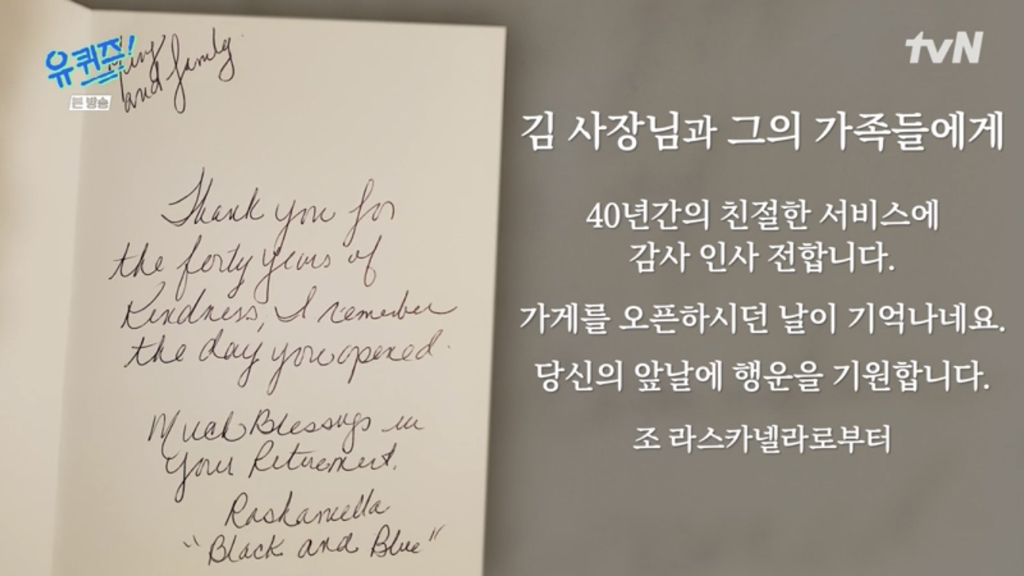 유퀴즈!
본방송
tvN
and family
Thank you for
the forty years of
Kindness, I remember
the day you opened.
Much Blessings in
your Retirement.
Raskanella
"Black and Blue"
김 사장님과 그의 가족들에게
40년간의 친절한 서비스에
감사 인사 전합니다.
가게를 오픈하시던 날이 기억나네요.
당신의 앞날에 행운을 기원합니다.
조 라스카넬라로부터